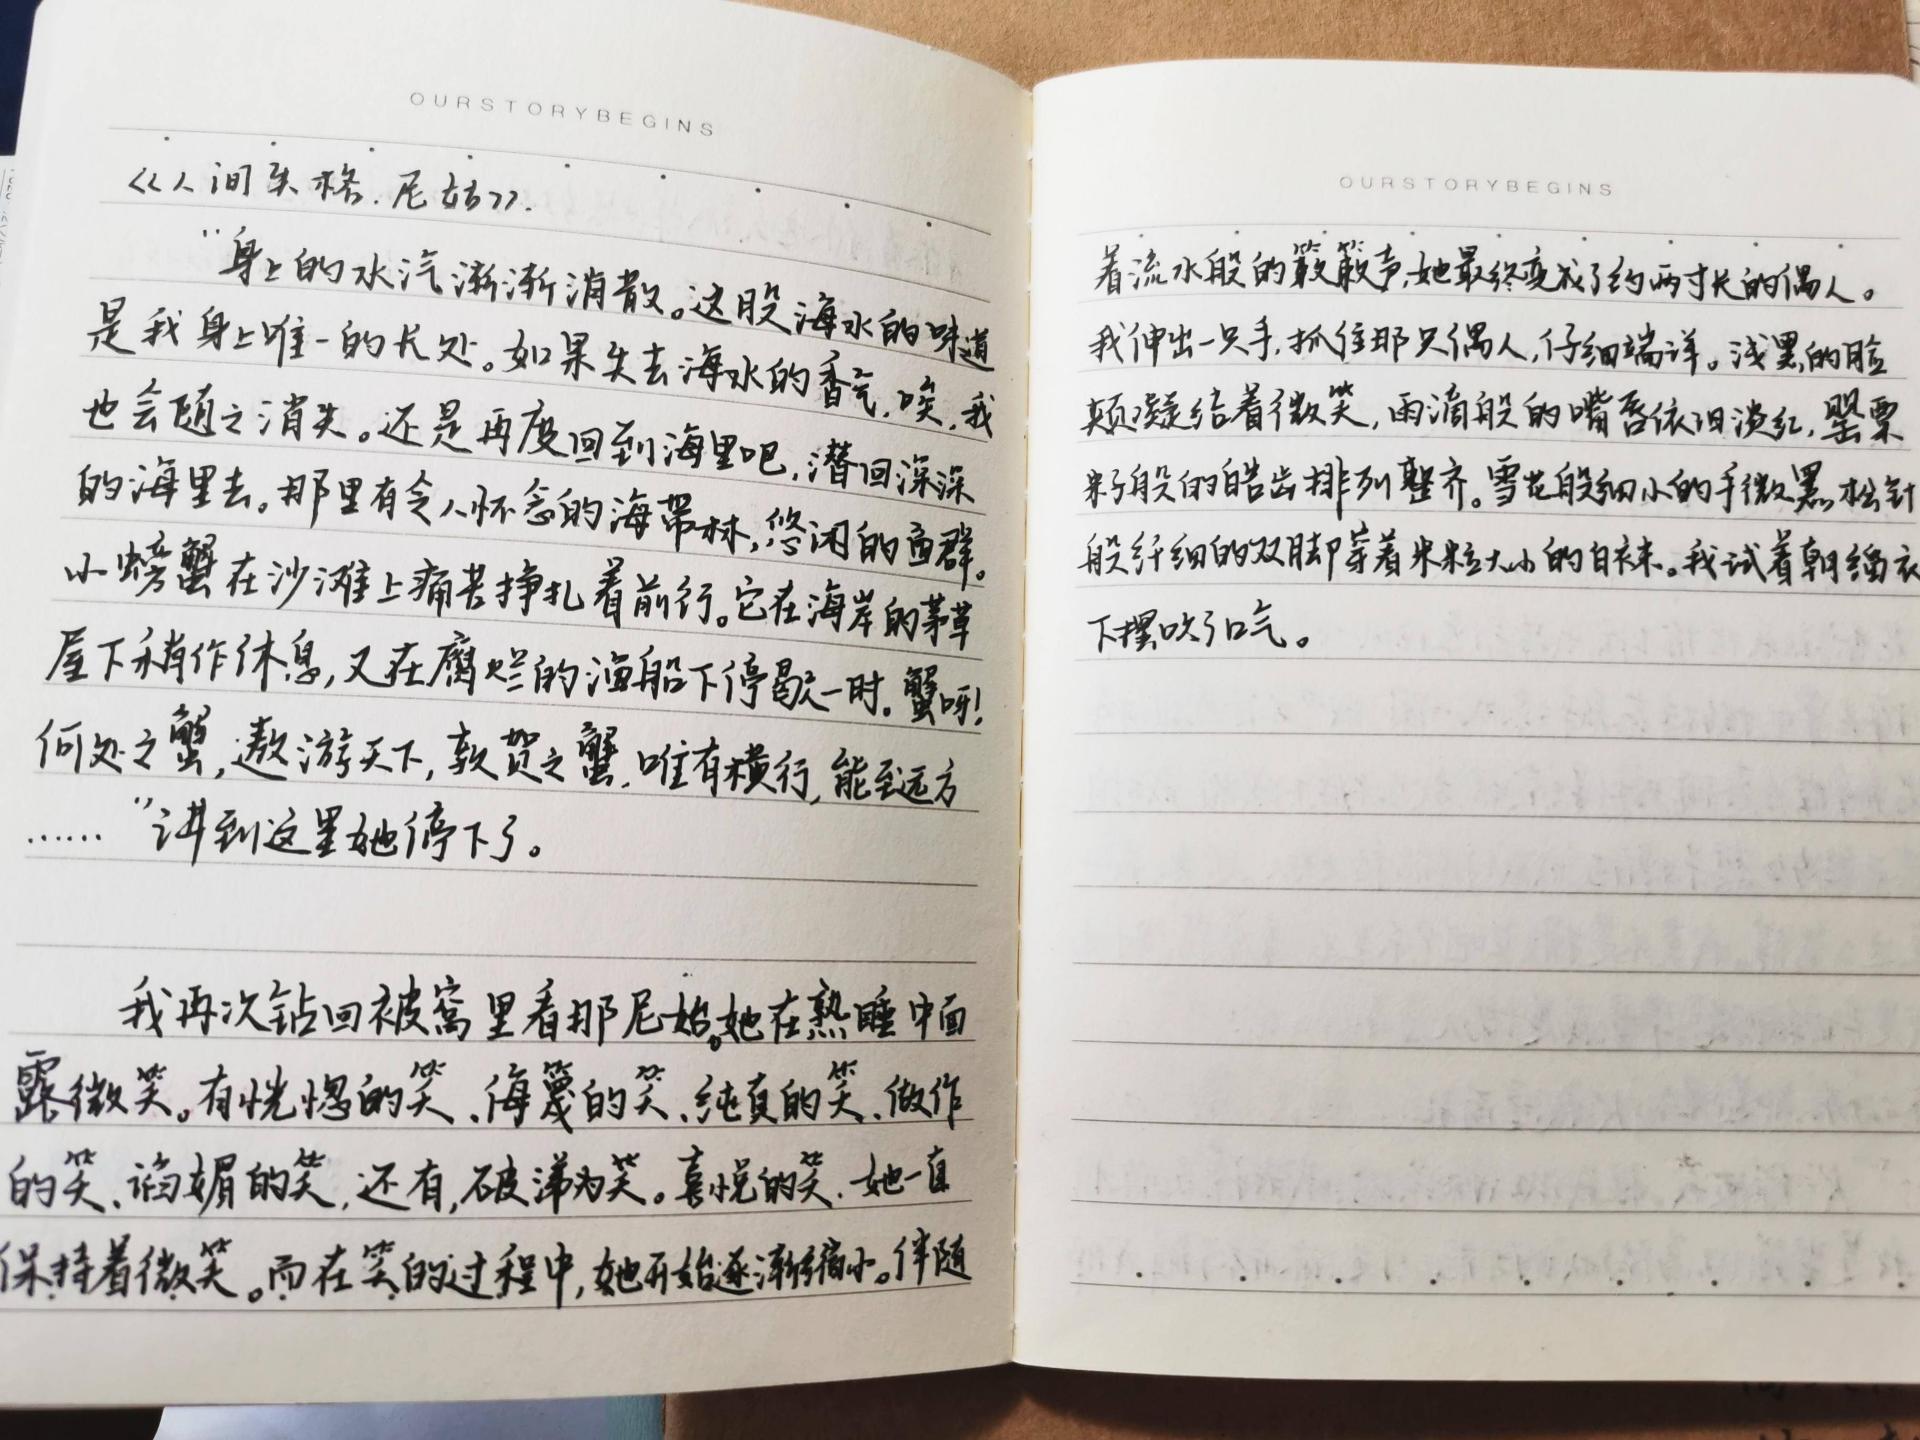 OURSTORYBEGINS
《人间失格.尼姑》.
“身上的水汽渐渐消散。这股海水的味道
是我身上唯一的长处。如果失去海水的香气,唉,我
也会随之消失。还是再度回到海里吧,潜回深深
的海里去。那里有令人怀念的海带林,悠闲的鱼群。
小螃蟹在沙滩上痛苦挣扎着前行。它在海岸的茅草
屋下稍作休息,又在腐烂的渔船下停歇一时。蟹呀!
何处之蟹,遨游天下,敦贺之蟹,唯有横行,能至远方
……”讲到这里她停下了。
我再次钻回被窝里看那尼姑。她在熟睡中面
露微笑。有恍惚的笑、侮蔑的笑、纯真的笑、做作
的笑、谄媚的笑,还有,破涕为笑。喜悦的笑.她一直
保持着微笑。而在笑的过程中,她开始逐渐缩小。伴随
OURSTORYBEGINS
着流水般的簌簌声,她最终变成了约两寸长的偶人。
我伸出一只手,抓住那只偶人,仔细端详。浅黑的脸
颊凝结着微笑,雨滴般的嘴唇依旧淡红,罂粟
籽般的皓齿排列整齐。雪花般细小的手微黑,松针
般纤细的双脚穿着米粒大小的白袜。我试着朝缅衣
下摆吹了口气。